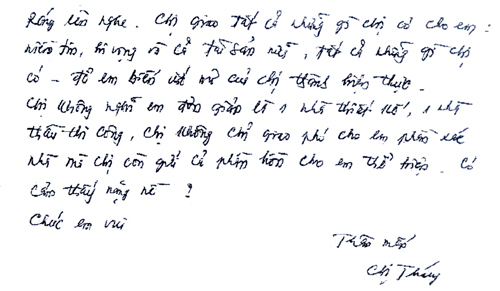 Ráng lên nghe. Chị giao tất cả những gì chị có cho em:
niềm tin, hi vọng và cả tài sản nữa, tất cả những gì chị
có – để em biến ước mơ của chị thành hiện thực.
Chị không nghĩ em đơn giản là 1 nhà thiết kế, 1 nhà
thầu thi công, chị không chỉ giao phó cho em phần xác
nhà mà chị còn gửi cả phần hồn cho em thể hiện. Có
cảm thấy nặng nề ?
Chúc em vui
Thân mến
Chị Thủy